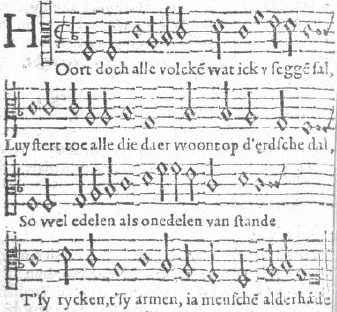 HOort doch alle volckẽ wat ick v seggẽ sal,
Luystert toe alle die daer woont op d'erdsche dal,
So wel edelen als onedelen van stande
T'sy rycken, t'sy armen, ia menschẽ alderhãde